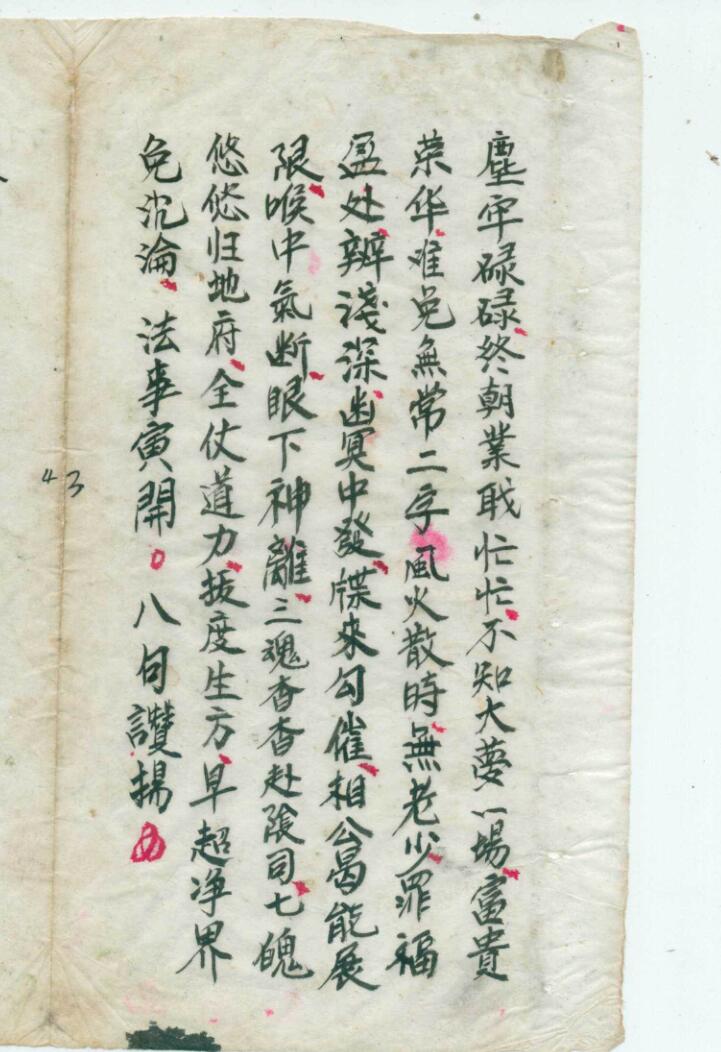 塵牢碌碌終朝業戢忙忙不知大夢一場富貴
荣华难免無常二字風火散時無老少罪福
盈处辨淺深幽冥中發牒来勾催相公曷能展
限喉中氣断眼下神離三魂杳杳赴陰司七魄
悠悠归地府全仗道力拔度生方早超净界
免沉淪法事寅開八句讚揚
43